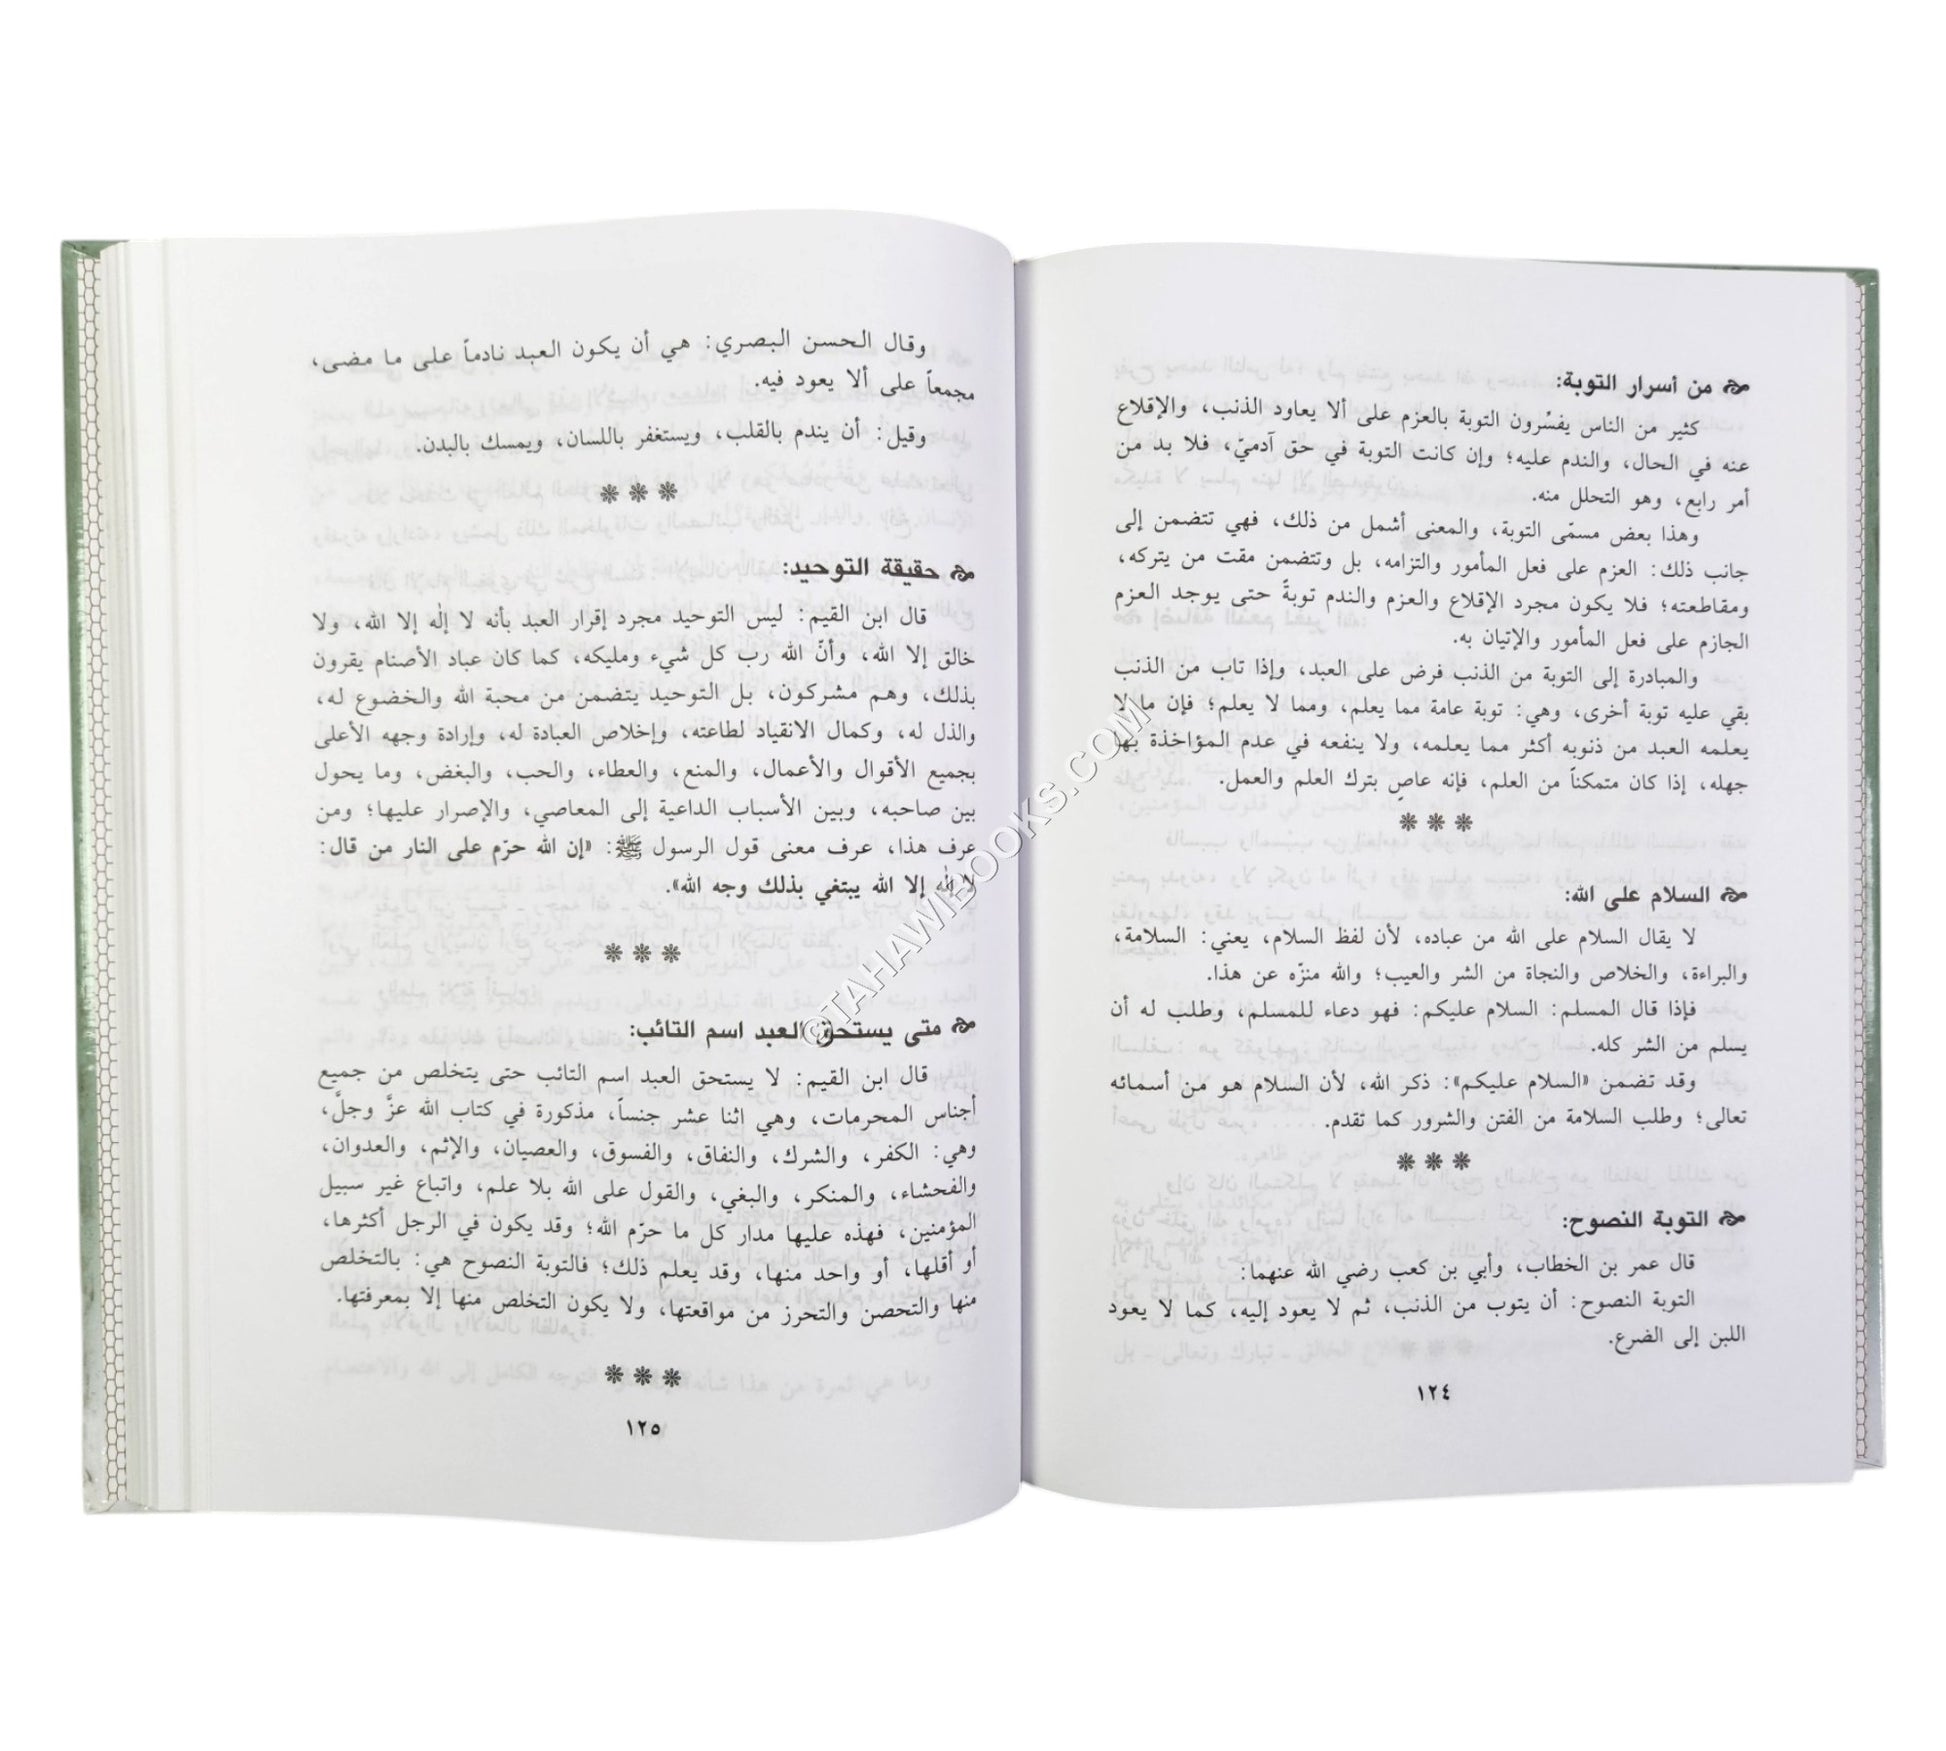 من أسرار التوبة:
كثير من الناس يفسِّرون التوبة بالعزم على ألا يعاود الذنب، والإقلاع
عنه في الحال، والندم عليه؛ وإن كانت التوبة في حق آدميّ، فلا بد من
أمر رابع، وهو التحلل منه.
وهذا بعض مسمّى التوبة، والمعنى أشمل من ذلك، فهي تتضمن إلى
جانب ذلك: العزم على فعل المأمور والتزامه، بل وتتضمن مقت من يتركه،
ومقاطعته؛ فلا يكون مجرد الإقلاع والعزم والندم توبةً حتى يوجد العزم
الجازم على فعل المأمور والإتيان به.
والمبادرة إلى التوبة من الذنب فرض على العبد، وإذا تاب من الذنب
بقي عليه توبة أخرى، وهي: توبة عامة مما يعلم، ومما لا يعلم؛ فإن ما لا
يعلمه العبد من ذنوبه أكثر مما يعلمه، ولا ينفعه في عدم المؤاخذة بها
جهله، إذا كان متمكناً من العلم، فإنه عاصٍ بترك العلم والعمل.
❋ ❋ ❋
السلام على الله:
لا يقال السلام على الله من عباده، لأن لفظ السلام، يعني: السلامة،
والبراءة، والخلاص والنجاة من الشر والعيب؛ والله منزّه عن هذا.
فإذا قال المسلم: السلام عليكم: فهو دعاء للمسلم، وطلب له أن
يسلم من الشر كله.
وقد تضمن «السلام عليكم»: ذكر الله، لأن السلام هو من أسمائه
تعالى؛ وطلب السلامة من الفتن والشرور كما تقدم.
❋ ❋ ❋
التوبة النصوح:
قال عمر بن الخطاب، وأبي بن كعب رضي الله عنهما:
التوبة النصوح: أن يتوب من الذنب، ثم لا يعود إليه، كما لا يعود
اللبن إلى الضرع.
١٢٤
وقال الحسن البصري: هي أن يكون العبد نادماً على ما مضى،
مجمعاً على ألا يعود فيه.
وقيل: أن يندم بالقلب، ويستغفر باللسان، ويمسك بالبدن.
❋ ❋ ❋
حقيقة التوحيد:
قال ابن القيم: ليس التوحيد مجرد إقرار العبد بأنه لا إلٰه إلا الله، ولا
خالق إلا الله، وأنّ الله رب كل شيء ومليكه، كما كان عباد الأصنام يقرون
بذلك، وهم مشركون، بل التوحيد يتضمن من محبة الله والخضوع له،
والذل له، وكمال الانقياد لطاعته، وإخلاص العبادة له، وإرادة وجهه الأعلى
بجميع الأقوال والأعمال، والمنع، والعطاء، والحب، والبغض، وما يحول
بين صاحبه، وبين الأسباب الداعية إلى المعاصي، والإصرار عليها؛ ومن
عرف هذا، عرف معنى قول الرسول ﷺ: «إن الله حرّم على النار من قال:
لا إلٰه إلا الله يبتغي بذلك وجه الله».
❋ ❋ ❋
متى يستحق العبد اسم التائب:
قال ابن القيم: لا يستحق العبد اسم التائب حتى يتخلص من جميع
أجناس المحرمات، وهي اثنا عشر جنساً، مذكورة في كتاب الله عزَّ وجلَّ،
وهي: الكفر، والشرك، والنفاق، والفسوق، والعصيان، والإثم، والعدوان،
والفحشاء، والمنكر، والبغي، والقول على الله بلا علم، واتباع غير سبيل
المؤمنين، فهذه عليها مدار كل ما حرّم الله؛ وقد يكون في الرجل أكثرها،
أو أقلها، أو واحد منها، وقد يعلم ذلك؛ فالتوبة النصوح هي: بالتخلص
منها والتحصن والتحرز من مواقعتها، ولا يكون التخلص منها إلا بمعرفتها.
❋ ❋ ❋
١٢٥
©TAHAWIBOOKS.COM